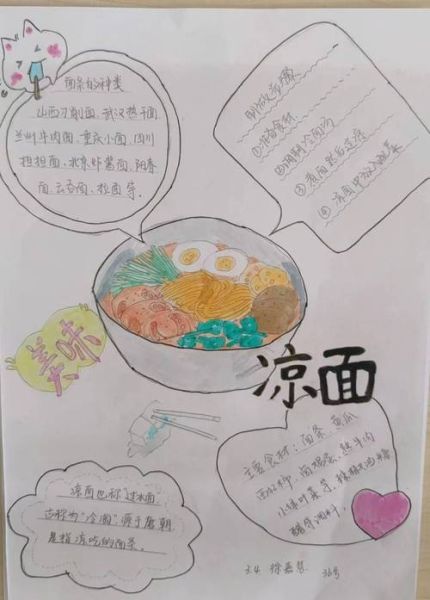 面条的种类
山西刀削面、武汉热干面
兰州牛肉面、重庆小面、四川
担担面、北京炸酱面、阳春
面、云吞面、拉面等.
制做步骤
①准备食材
②调制冷面汤
③煮面然后过凉
④凉面中放入蔬菜
美味
凉面
主要食材：面条、黄瓜
西红柿、
小绿叶菜等、辣椒油
醋等调料.
凉面也称过水面
古称为“冷淘”源于唐朝
是指凉吃的面条.
3.4 徐嘉 36号